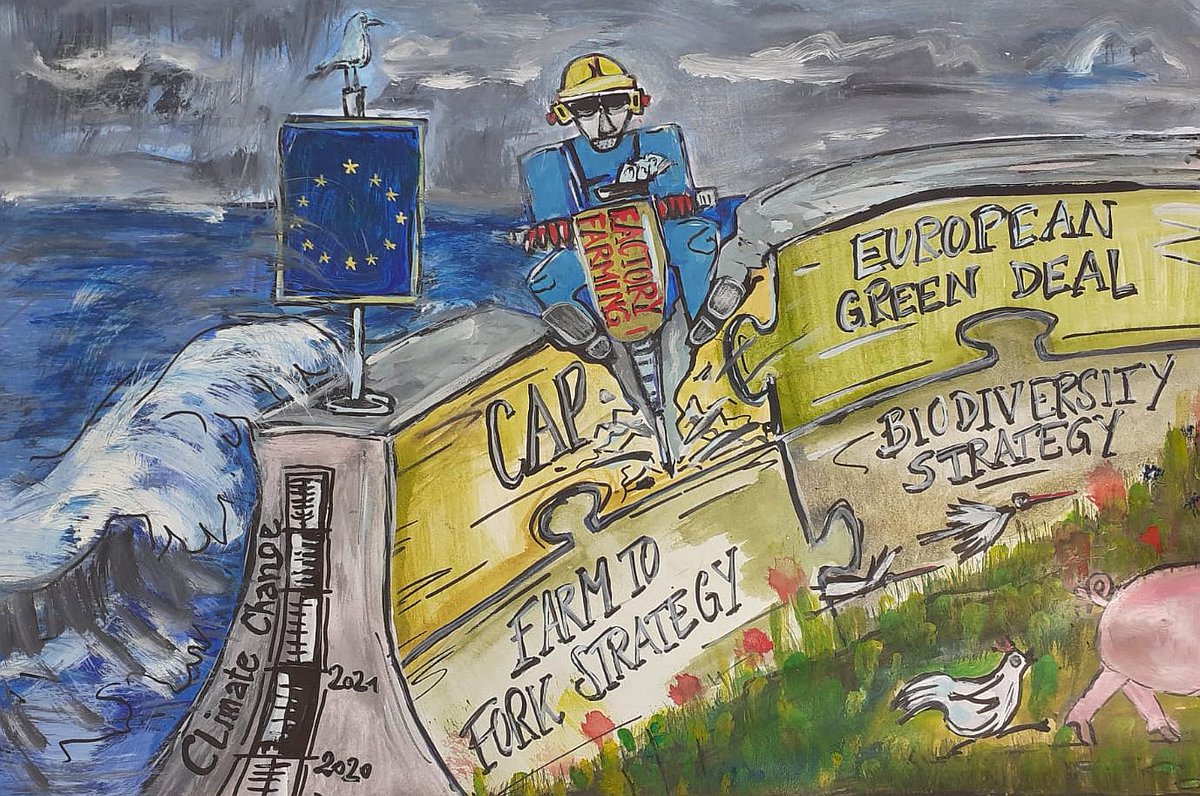 FACTORY
FARMING
EUROPEAN
GREEN DEAL
CAP
BIODIVERSITY
STRATEGY
FARM TO
FORK STRATEGY
Climate Change
2021
2020